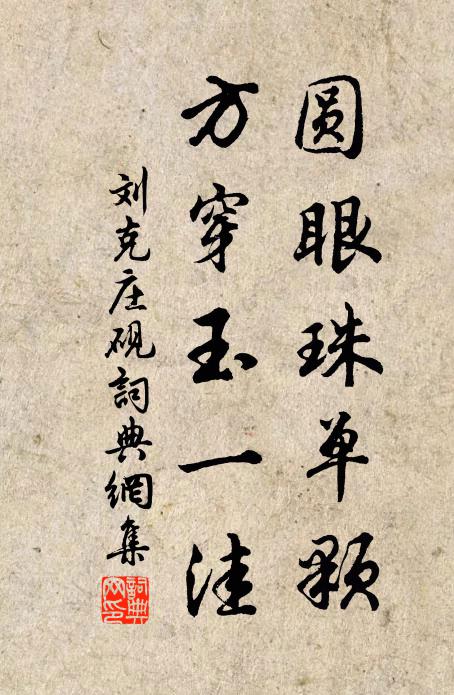 圆眼珠单颗
方穿玉一洼
刘克庄砚詞典網集
詞典网印